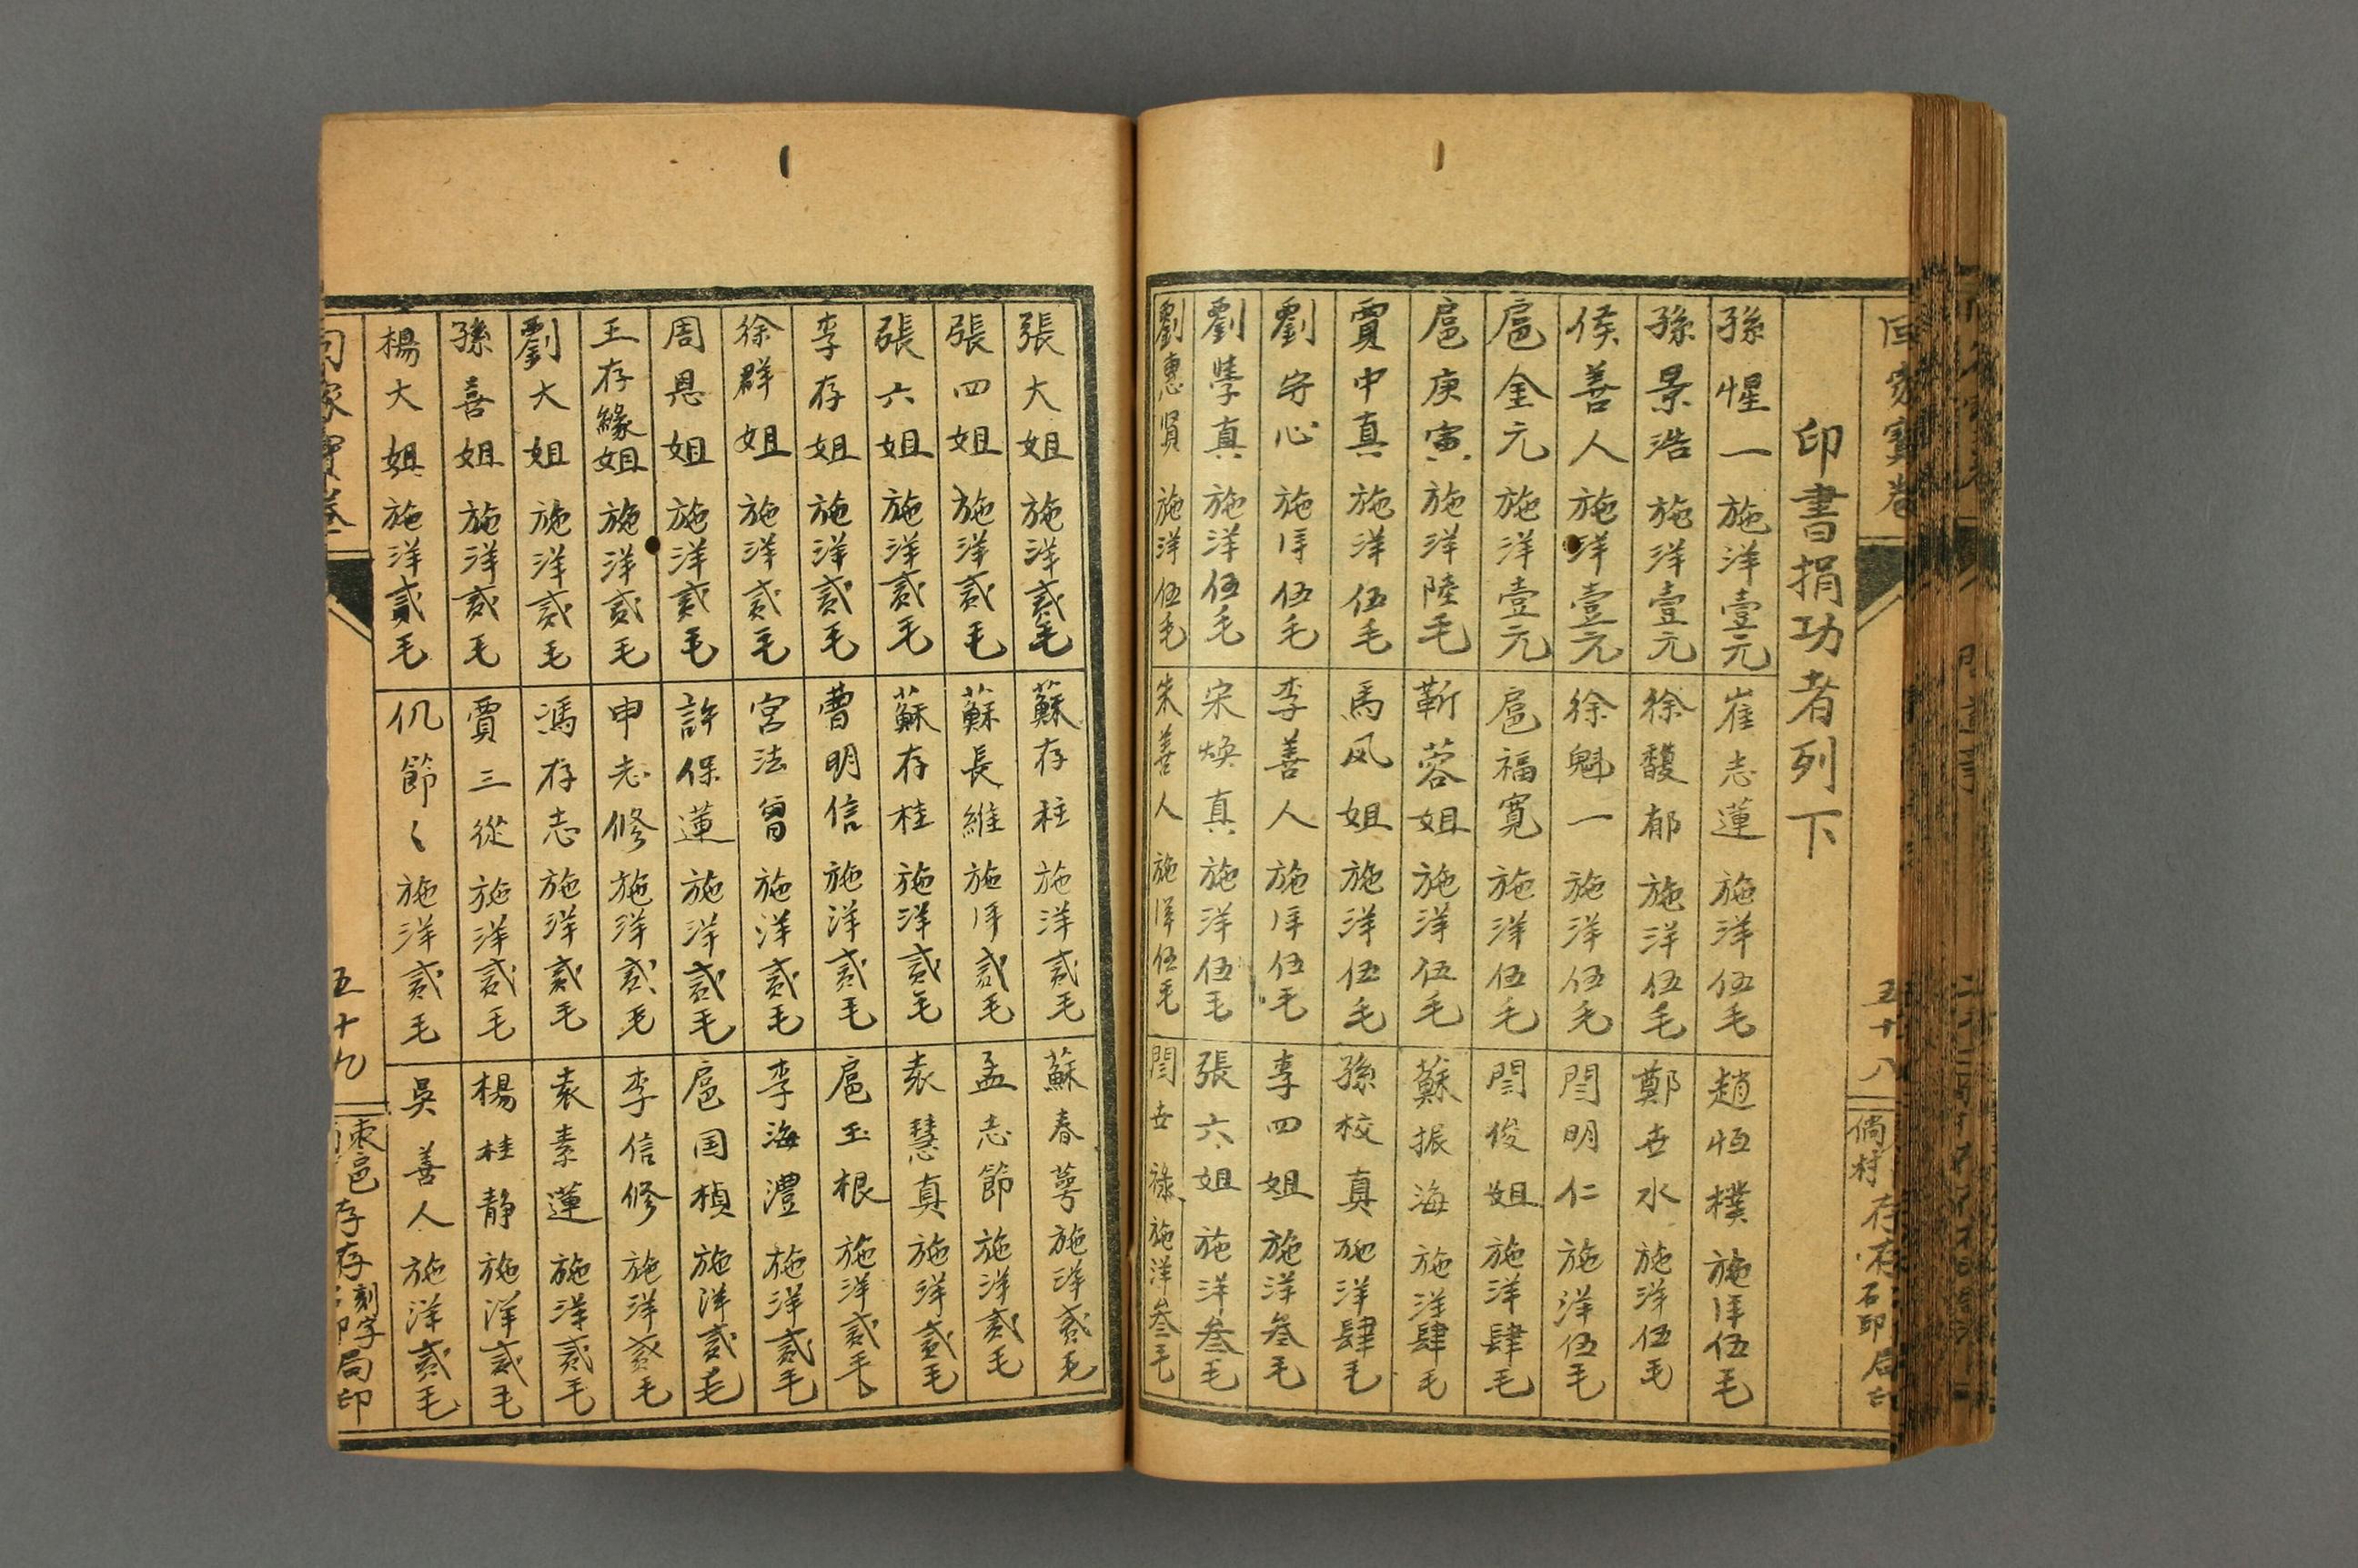 回家寳卷
五十八
存存石印局印
印書捐功者列下
孫惺一施洋壹元
崔志蓮施洋伍毛
趙恒樸施洋伍毛
孫景浩施洋壹元
徐馥郁施洋伍毛
鄭世水施洋伍毛
侯善人施洋壹元
徐魁一施洋伍毛
閆明仁施洋伍毛
扈金元施洋壹元
扈福寬施洋伍毛
閆俊姐施洋肆毛
扈庚寅施洋陸毛
靳蓉姐施洋伍毛
蘇振海施洋肆毛
賈中真施洋伍毛
馬风姐施洋伍毛
孫校真施洋肆毛
劉守心施洋伍毛
李善人施洋伍毛
李四姐施洋叁毛
劉學真施洋伍毛
宋煥真施洋伍毛
張六姐施洋叁毛
劉惠賢施洋伍毛
朱善人施洋伍毛
閆世祿施洋叁毛
張大姐施洋貳毛
蘇存柱施洋貳毛
蘇春萼施洋貳毛
張四姐施洋貳毛
蘇長維施洋貳毛
孟志節施洋貳毛
張六姐施洋貳毛
蘇存桂施洋貳毛
袁慧真施洋貳毛
李存姐施洋貳毛
曹明信施洋貳毛
扈玉根施洋貳毛
徐群姐施洋貳毛
宮法曾施洋貳毛
李海澧施洋貳毛
周恩姐施洋貳毛
許保蓮施洋貳毛
扈国楨施洋貳毛
王存緣姐施洋貳毛
申志修施洋貳毛
李信修施洋貳毛
劉大姐施洋貳毛
馮存志施洋貳毛
袁素蓮施洋貳毛
孫喜姐施洋貳毛
賈三從施洋貳毛
楊桂静施洋貳毛
楊大姐施洋貳毛
仉節〻施洋貳毛
吳善人施洋貳毛
回家寳卷
五十九
棗邑存存刻字石印局印